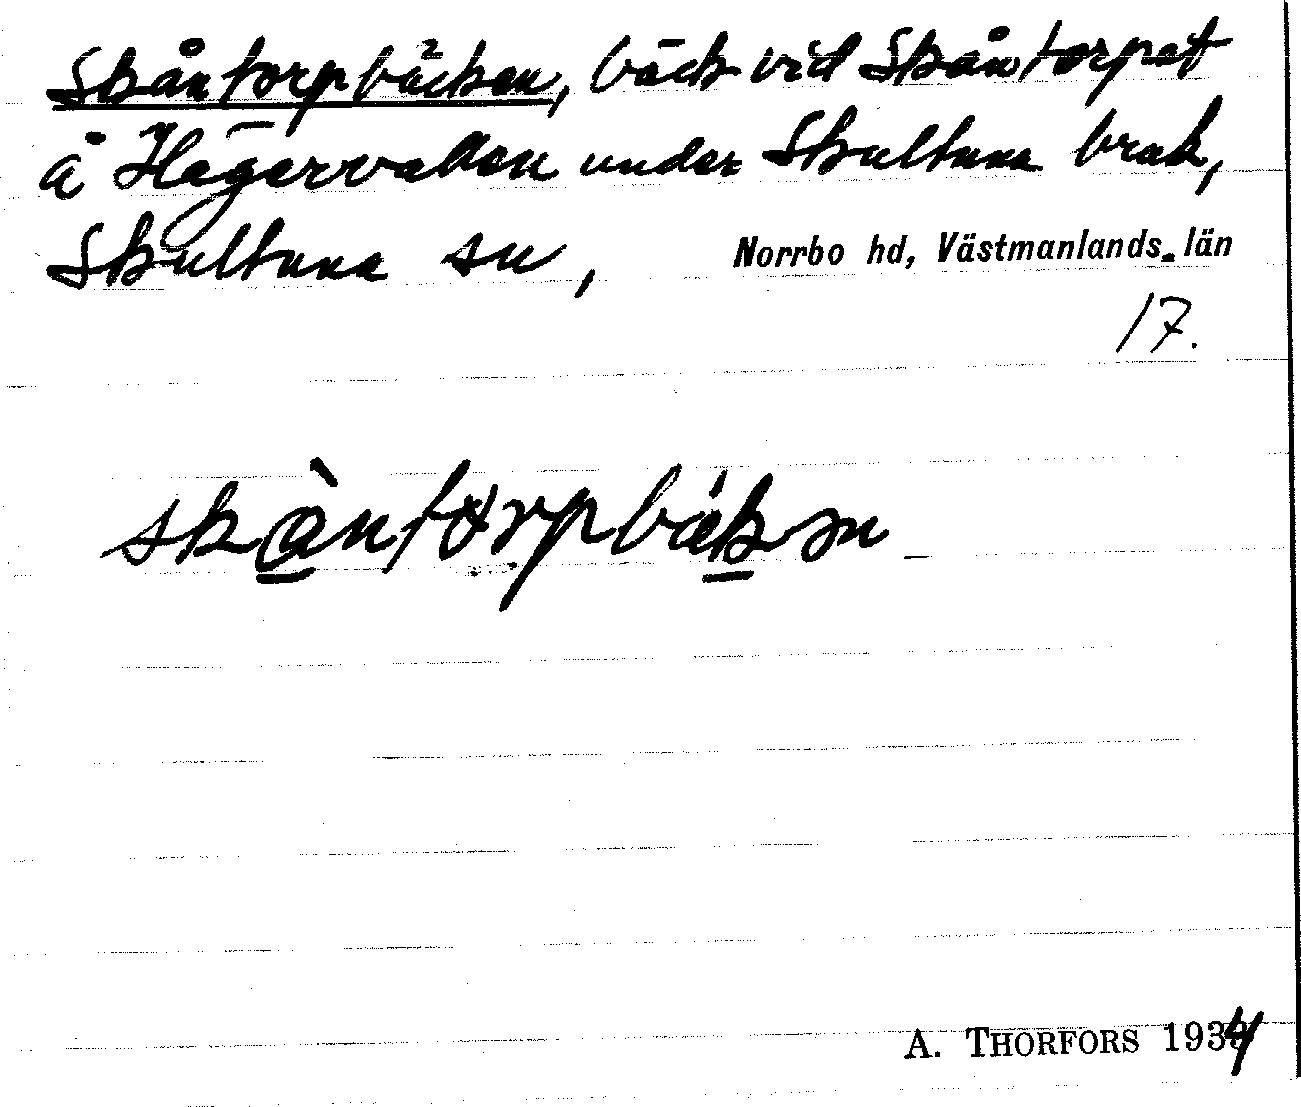 Skåntorpbäcken, bäck vid Skåntorpet
å Hagervallen under Skultuna bruk,
Skultuna sn, Norrbo hd, Västmanlands län
17.
skàntorpbäkən
A. THORFORS 1934